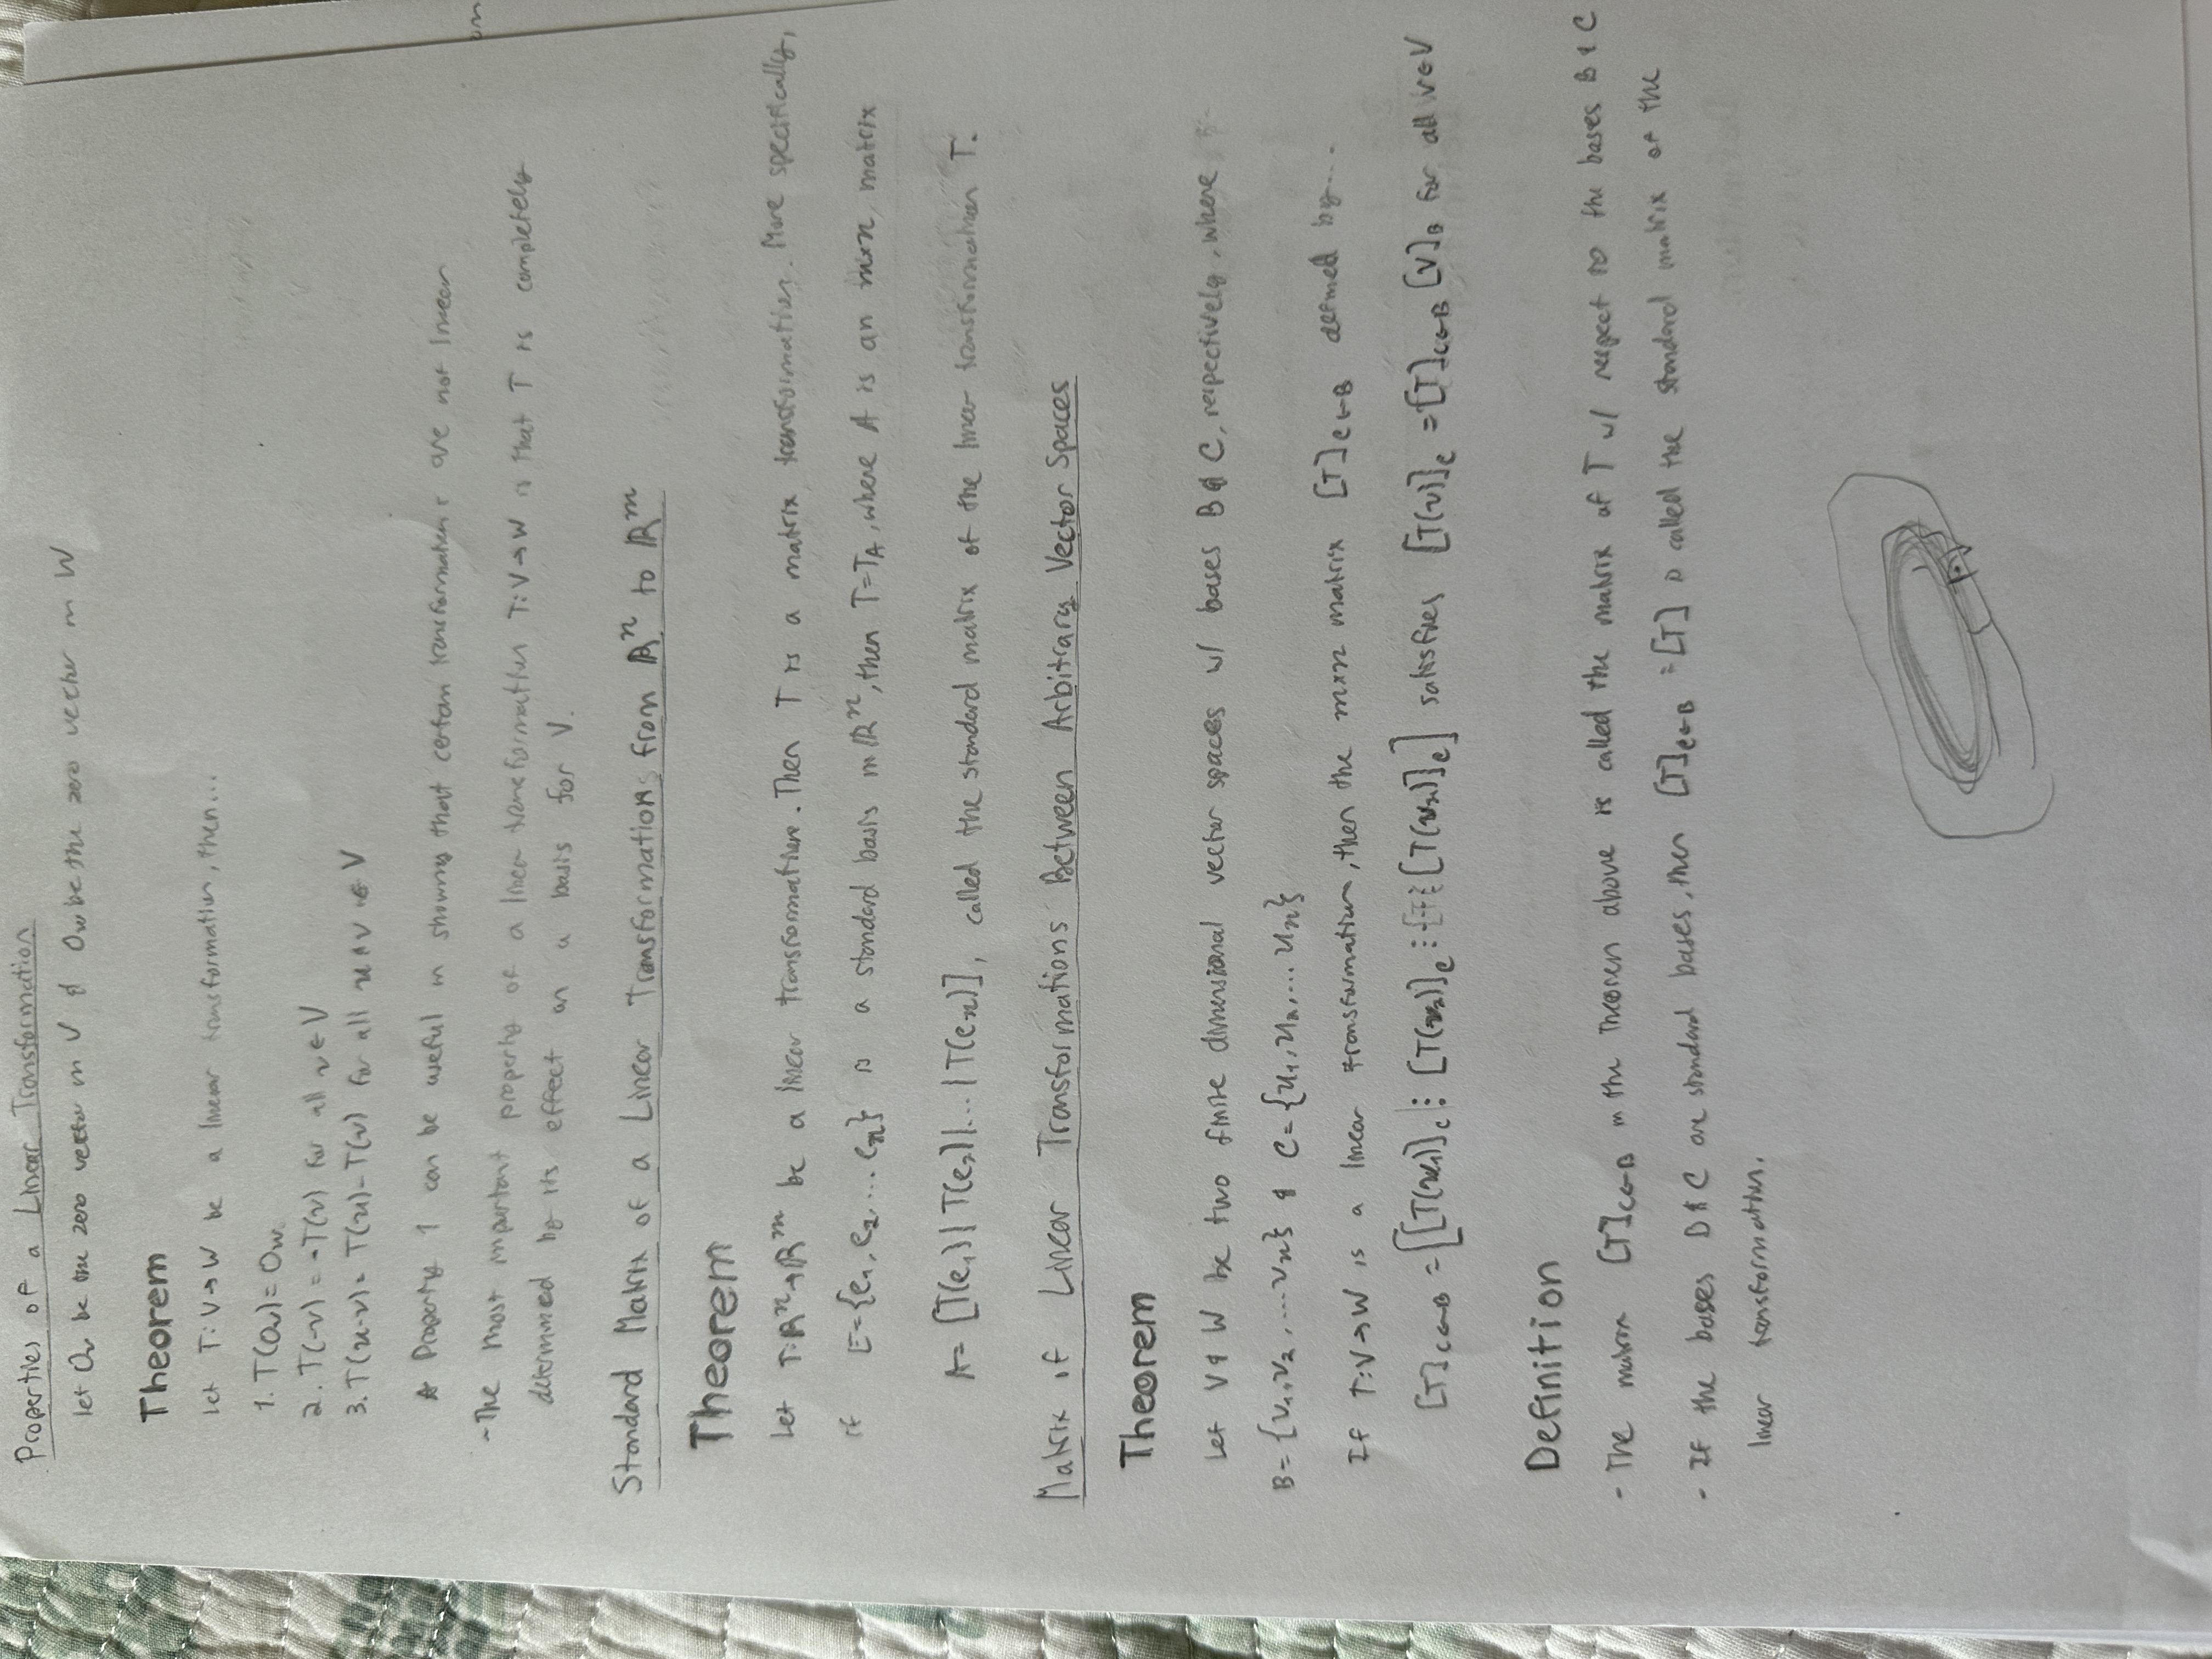 Properties of a Linear Transformation
let 0v be the zero vector in V & 0w be the zero vector in W
Theorem
Let T: V→W be a linear transformation, then...
1. T(0v) = 0w
2. T(-v) = -T(v) for all v ∈ V
3. T(u-v) = T(u) - T(v) for all u & v ∈ V
* Property 1 can be useful in showing that certain transformations are not linear
- The most important property of a linear transformation T: V→W is that T is completely
determined by its effect on a basis for V.
Standard Matrix of a Linear Transformations from ℝⁿ to ℝᵐ
Theorem
Let T: ℝⁿ→ℝᵐ be a linear transformation. Then T is a matrix transformation. More specifically,
if E = {e₁, e₂, ... eₙ} is a standard basis in ℝⁿ, then T = T_A, where A is an m×n matrix
A = [T(e₁) | T(e₂) | ... | T(eₙ)], called the standard matrix of the linear transformation T.
Matrix of Linear Transformations Between Arbitrary Vector Spaces
Theorem
Let V & W be two finite dimensional vector spaces w/ bases B & C, respectively, where
B = {v₁, v₂, ... vₙ} & C = {u₁, u₂, ... uₙ}
If T: V→W is a linear transformation, then the m×n matrix [T]C←B defined by...
[T]C←B = [[T(v₁)]C ⋮ [T(v₂)]C ⋮ [T(vₙ)]C] satisfies [T(v)]C = [T]C←B [V]B for all v ∈ V
Definition
- The matrix [T]C←B in the Theorem above is called the matrix of T w/ respect to the bases B & C
- If the bases B & C are standard bases, then [T]C←B = [T] is called the standard matrix of the
linear transformation.